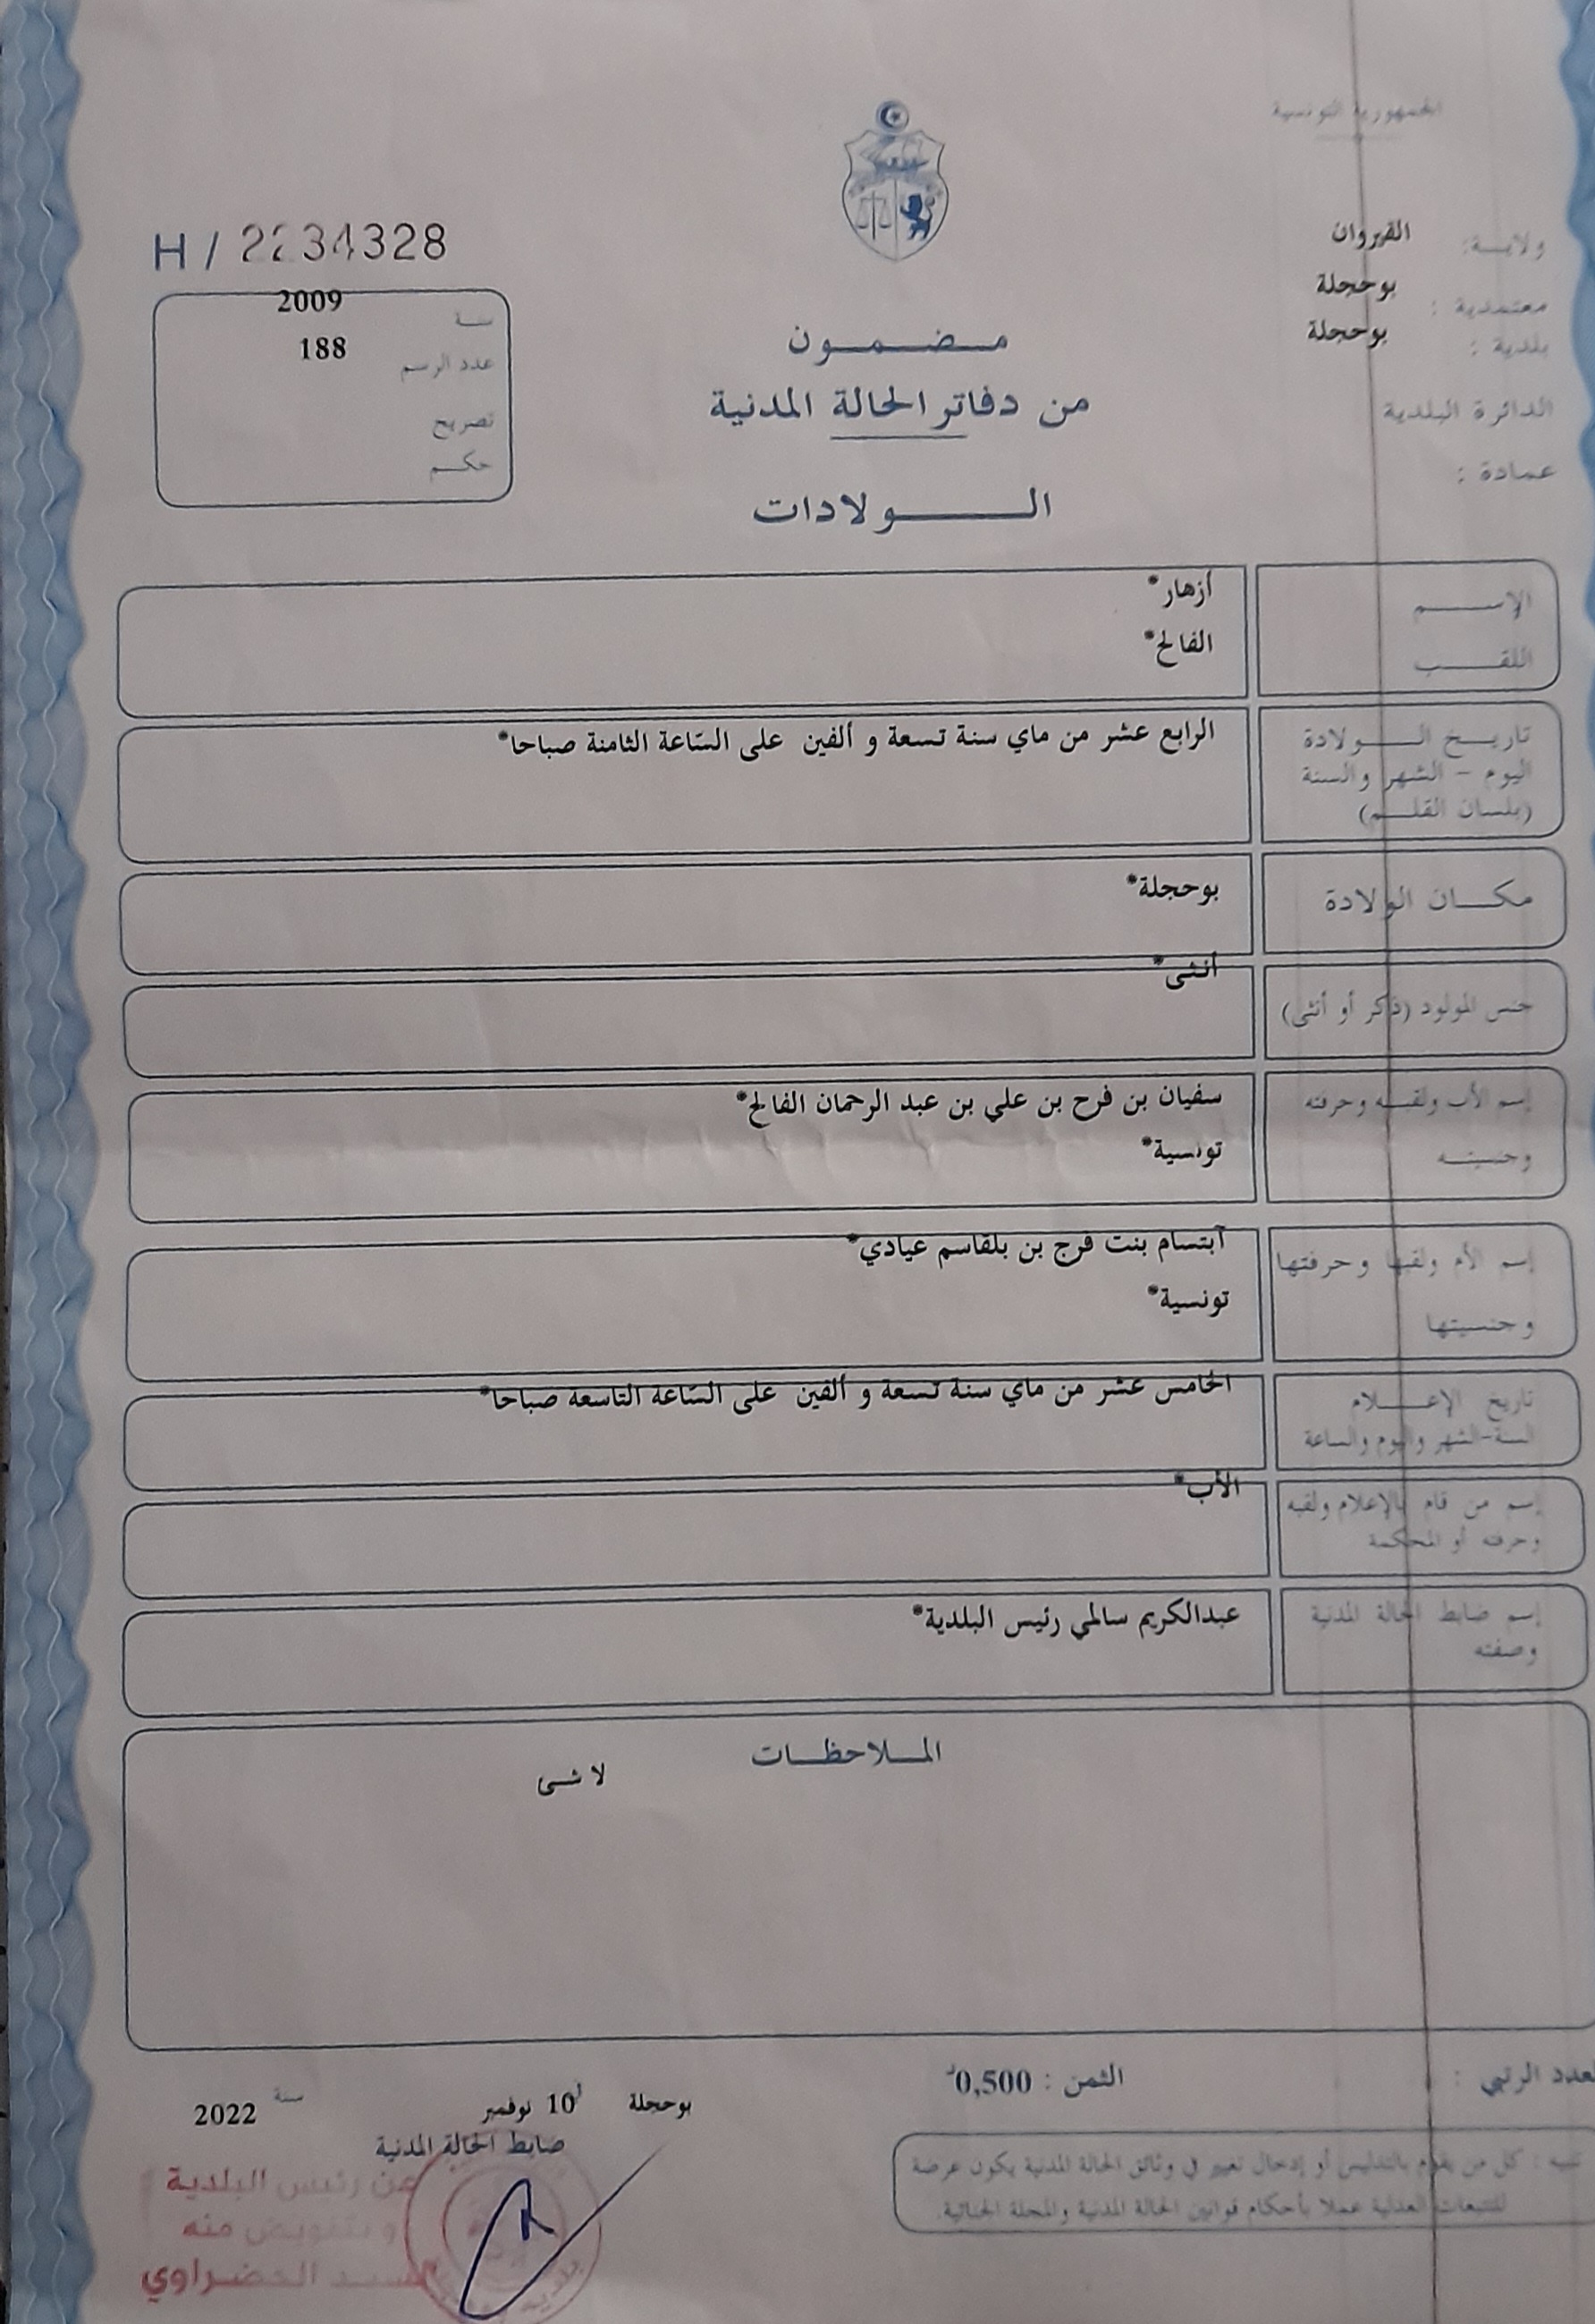 الجمهورية التونسية
ولايــة: القيروان
معتمدية : بوحجلة
بلدية : بوحجلة
الدائرة البلدية
عمادة :
مـضـمـون
من دفاتر الحالة المدنية
الـولادات
H / 2234328
سنة 2009
عدد الرسم 188
تصريح
حكم
الإسـم أزهار*
اللقـب الفالح*
تاريـخ الـولادة الرابع عشر من ماي سنة تسعة و ألفين على السّاعة الثامنة صباحا*
اليوم - الشهر والسنة
(بلسان القلـم)
مكـان الولادة بوحجلة*
جنس المولود (ذكر أو أنثى) أنثى*
إسم الأب ولقبـه وحرفته سفيان بن فرح بن علي بن عبد الرحمان الفالح*
وجنسيتـه تونسية*
إسم الأم ولقبها وحرفتها آبتسام بنت فرج بن بلقاسم عيادي*
وجنسيتها تونسية*
تاريخ الإعـلام الخامس عشر من ماي سنة تسعة و ألفين على السّاعة التاسعة صباحا*
السنة-الشهر واليوم والساعة
إسم من قام بالإعلام ولقبه الأب*
وحرفته أو المحكمة
إسم ضابط الحالة المدنية عبدالكريم سالمي رئيس البلدية*
وصفته
المـلاحظـات
لا شئ
العدد الرتبي :
الثمن : 0,500د
بوحجلة في 10 نوفمبر سنة 2022
ضابط الحالة المدنية
تنبيه : كل من يقوم بالتدليس أو إدخال تغيير في وثائق الحالة المدنية يكون عرضة
للتتبعات العدلية عملا بأحكام قوانين الحالة المدنية والمجلة الجنائية.
عن رئيس البلدية
و بتفويض منه
الخضراوي